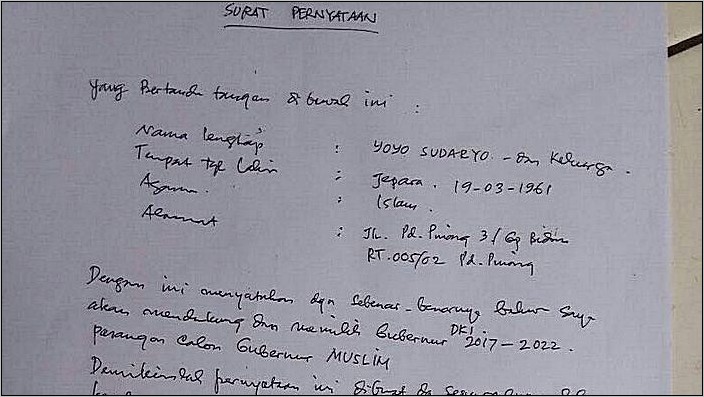 SURAT PERNYATAAN
Yang Bertanda tangan di bawah ini :
Nama lengkap : YOYO SUDARYO. - dan Keluarga.
Tempat Tgl Lahir : Jepara. 19-03-1961
Agama. : Islam.
Alamat : JL. Pd. Pinang 3 / Gg
RT.005/02 Pd. Pinang
Dengan ini menyatakan dgn sebenar-benarnya bahwa saya
akan mendukung dan memilih Gubernur DKI 2017-2022.
pasangan calon Gubernur MUSLIM
pernyataan ini dibuat